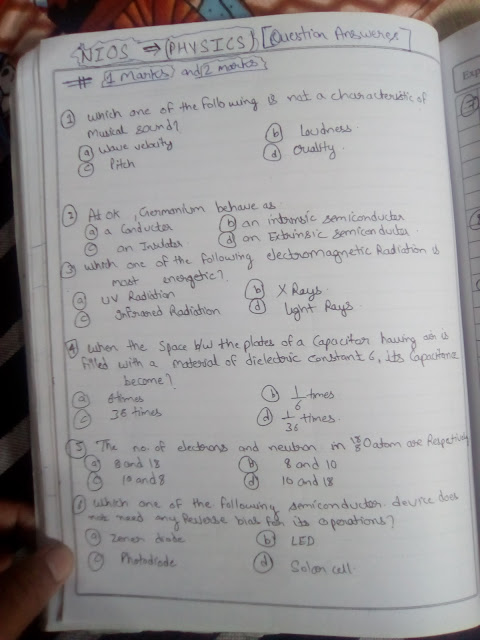 NIOS → (PHYSICS) [Question Answeres]
# (1 Marks) and (2 marks)
① which one of the following is not a characteristic of
musical sound?
ⓐ wave velocity ⓑ Loudness.
ⓒ Pitch ⓓ Quality.
② At 0K, Germanium behave as.
ⓐ a Conductor ⓑ an intrinsic semiconductor
ⓒ an Insulator ⓓ an Extrinsic semiconductor.
③ which one of the following electromagnetic Radiation is
most energetic?
ⓐ UV Radiation ⓑ X Rays.
ⓒ Infrared Radiation ⓓ Light Rays.
④ when the space b/w the plates of a Capacitor having air is
filled with a material of dielectric constant 6, its Capacitance
become?
ⓐ 6 times ⓑ 1/6 times
ⓒ 36 times ⓓ 1/36 times.
⑤ The no. of electrons and neutron in ¹⁸₈O atom are Respectively
ⓐ 8 and 18 ⓑ 8 and 10
ⓒ 10 and 8 ⓓ 10 and 18
⑥ which one of the following semiconductor device does
not need any Reverse bias for its operations?
ⓐ Zener diode ⓑ LED
ⓒ Photodiode ⓓ Solar cell.